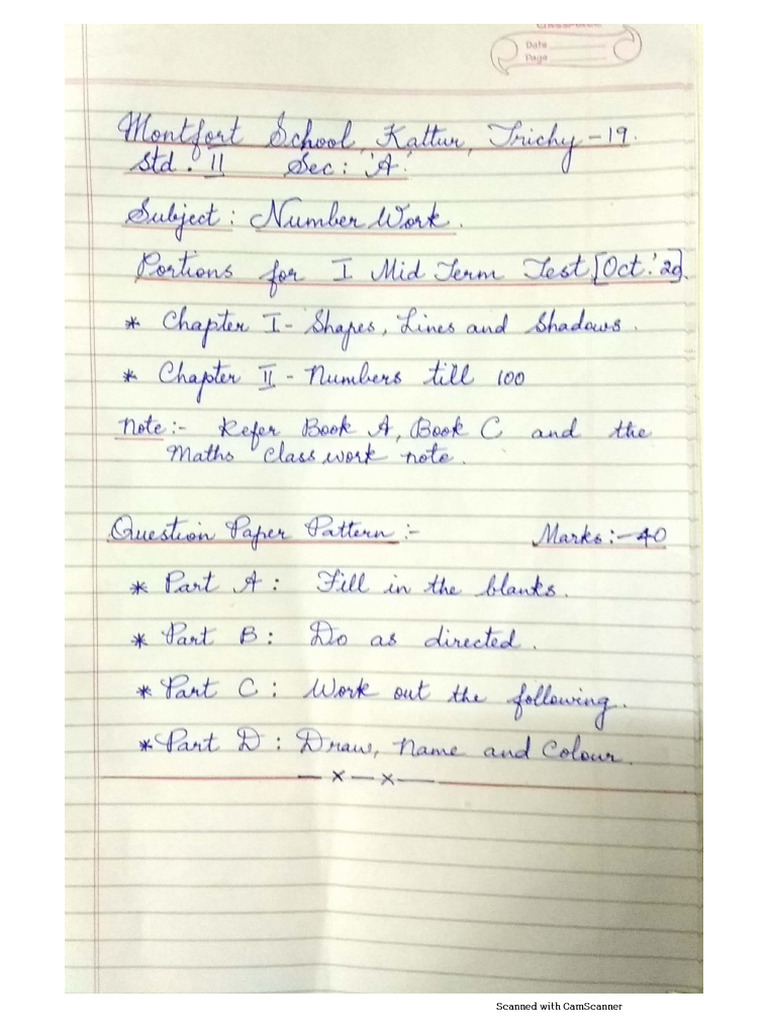 CLASSMATE
Date
Page
Montfort School, Kattur, Trichy-19.
Std. II Sec: 'A'
Subject: Number Work.
Portions for I Mid Term Test [Oct.'20].
* Chapter I - Shapes, Lines and Shadows.
* Chapter II - Numbers till 100
Note:- Refer Book A, Book C and the
Maths Class work note.
Question Paper Pattern:- Marks:-40
* Part A: Fill in the blanks.
* Part B: Do as directed.
* Part C: Work out the following.
* Part D: Draw, Name and Colour.
—x—x—
Scanned with CamScanner